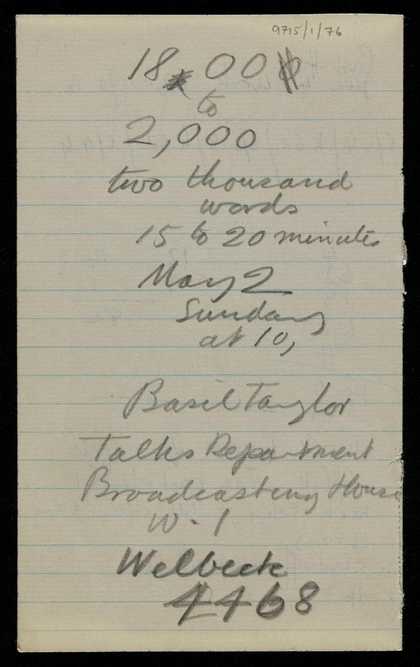 9715/1/76
18,000
to
2,000
two thousand
words
15 to 20 minutes
May 2
Sunday
at 10,
Basil Taylor
Talks Department
Broadcasting House
W.1
Welbeck
4468